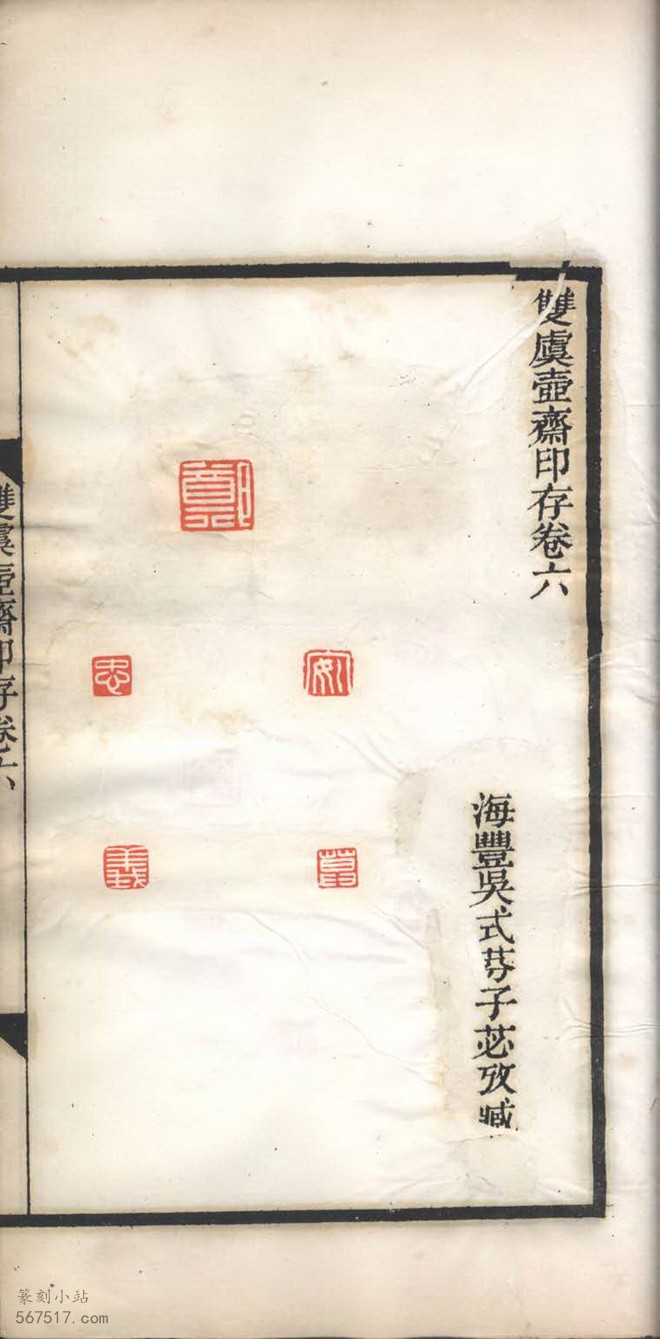 雙虞壺齋印存卷六
海豐吳式芬子苾攷藏
雙虞壺齋印存卷六
篆刻小站
567517.com